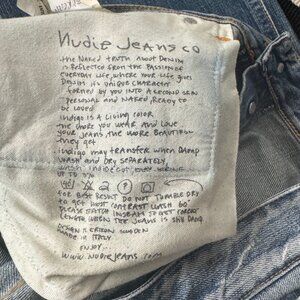 Nudie Jeans co
the Naked truth about Denim
is Reflected from the Passion of
everyday life, where your life gives
Denim its unique character
formed by you into a second skin
Personal and Naked, Ready to
be loved
indigo is a living color
the more you wear and love
your jeans the more beautiful
they get
indigo may transfer when damp
wash and dry separately
wash inside out
up to
for best result do not tumble dry
to get most contrast wash 60°
length when the jeans is still damp
Sweden
made in Italy
enjoy...
www.nudiejeans.com